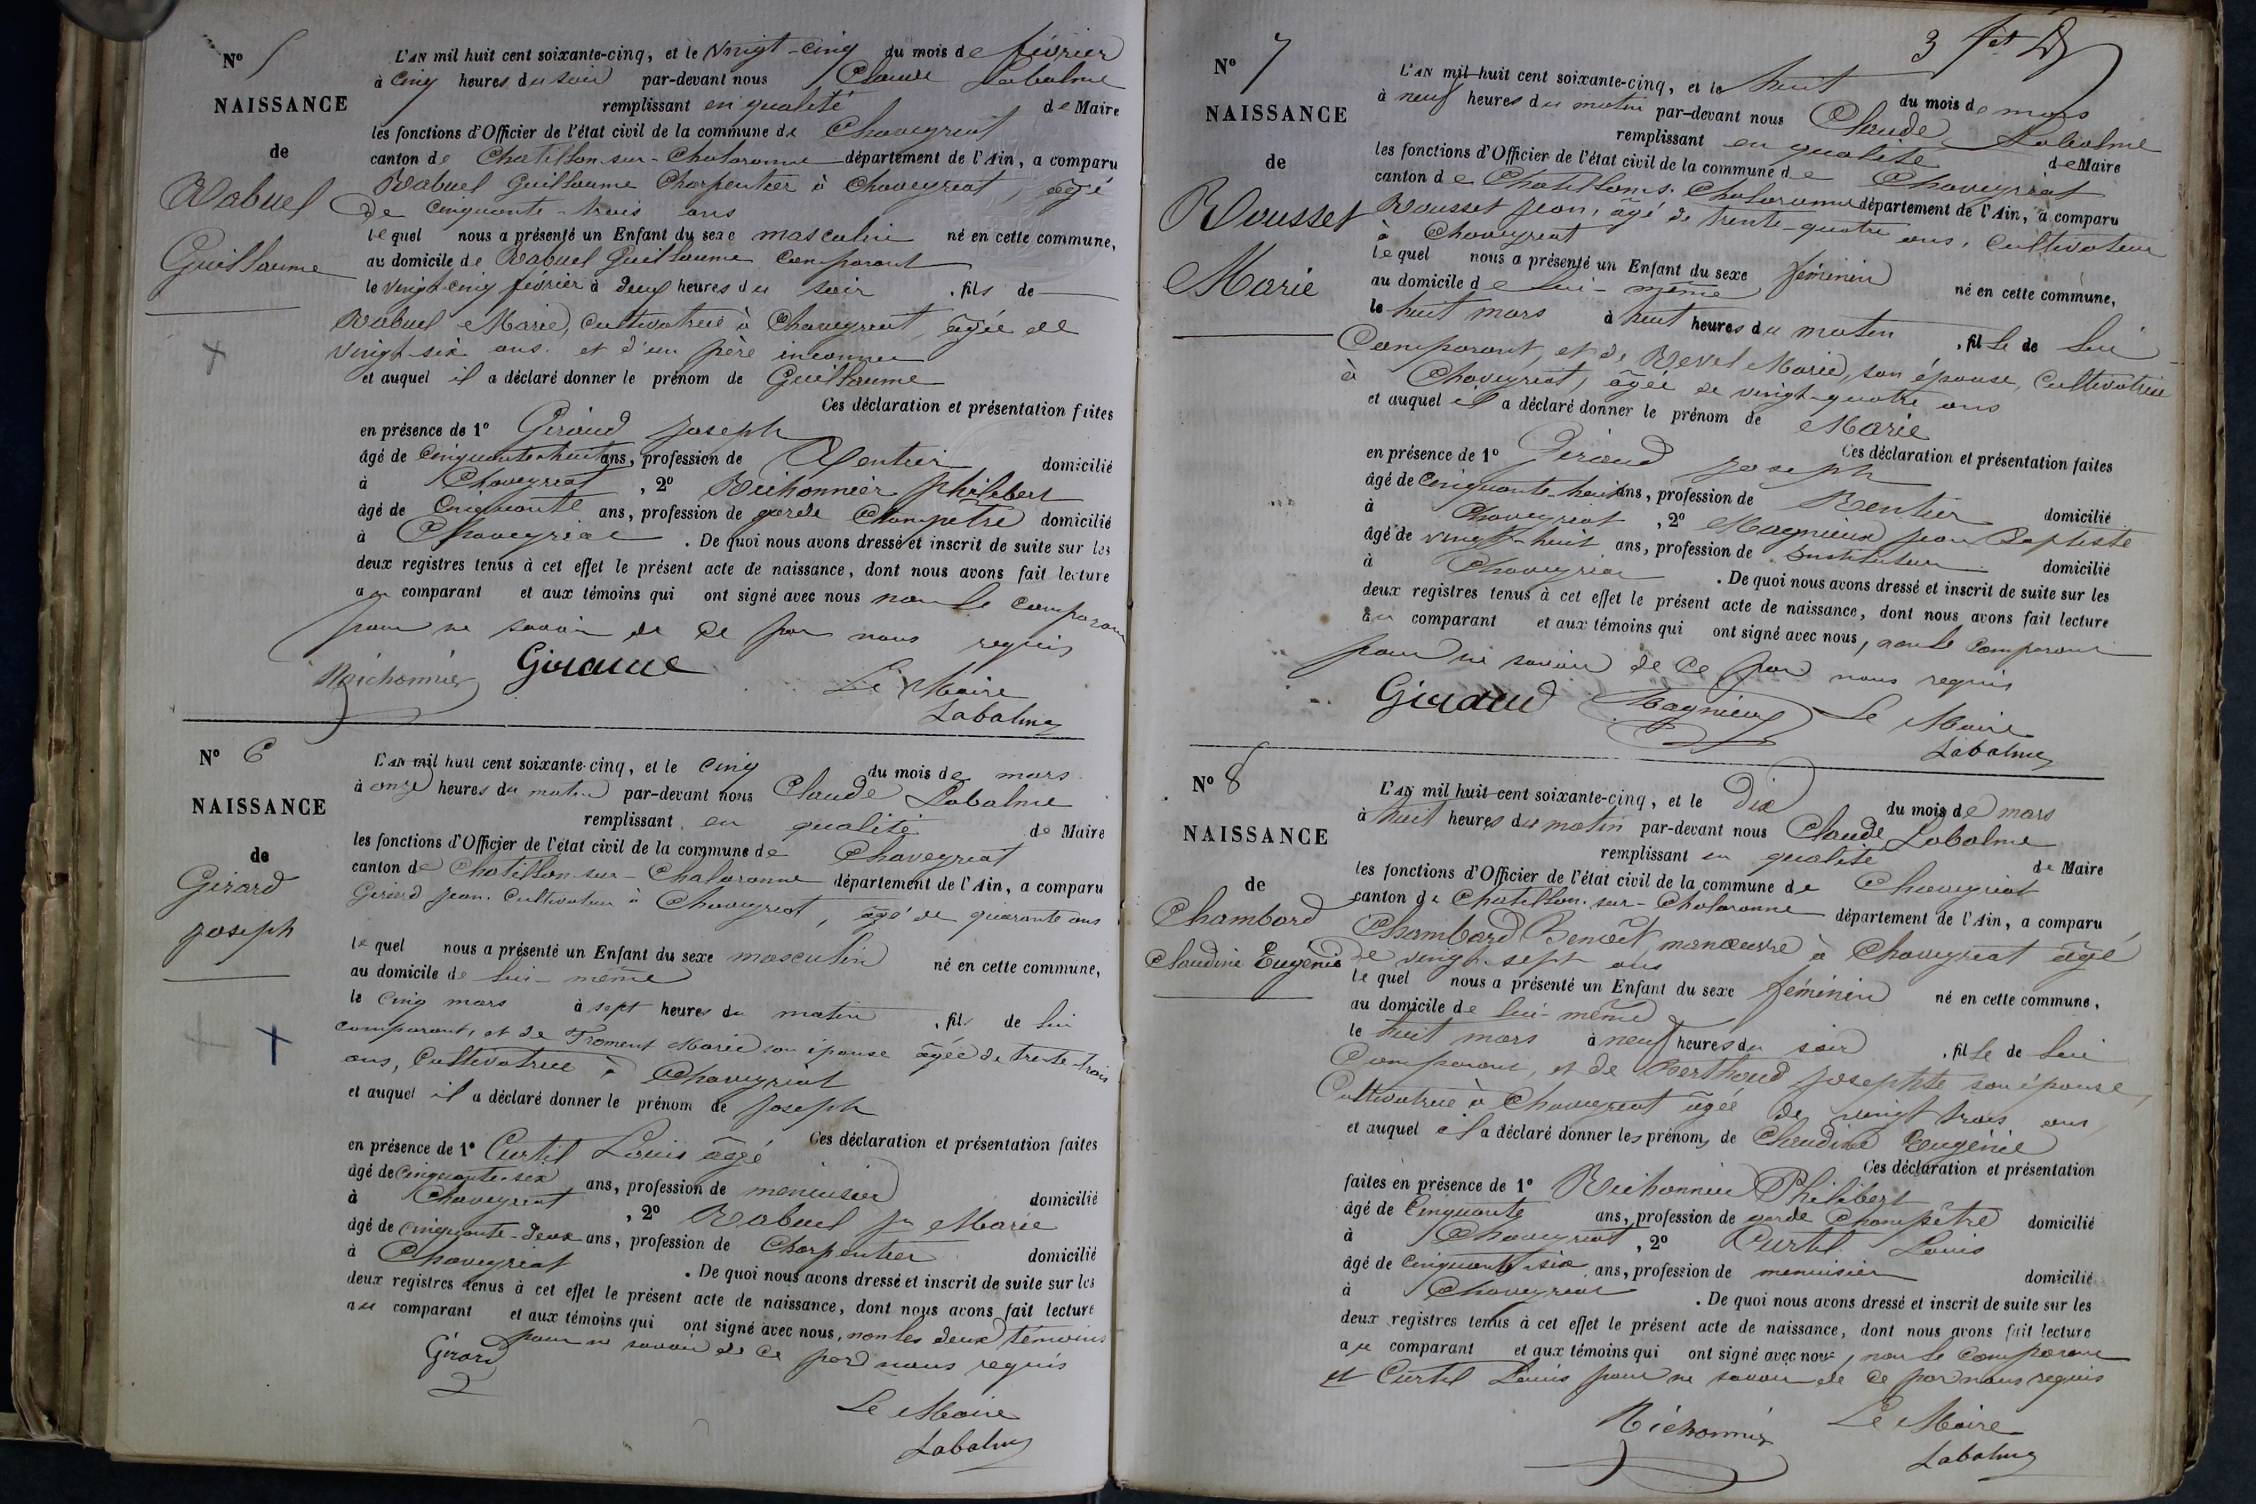 N° 5
NAISSANCE
de
Rabuel
Guillaume
L'AN mil huit cent soixante-cinq, et le vingt-cinq du mois de février
à cinq heures du soir par-devant nous Claude Labalme
remplissant en qualité de Maire
les fonctions d'Officier de l'état civil de la commune de Chaveyriat
canton de Chatillon-sur-Chalaronne département de l'Ain, a comparu
Rabuel Guillaume Charpentier à Chaveyriat, agé
de cinquante-trois ans
lequel nous a présenté un Enfant du sexe masculin né en cette commune,
au domicile de Rabuel Guillaume Comparant
le vingt-cinq février à deux heures du soir , fils de
Rabuel Marie, Cultivatrice à Chaveyriat, âgée de
vingt-six ans. et d'un père inconnu
et auquel il a déclaré donner le prénom de Guillaume
Ces déclaration et présentation faites
en présence de 1° Giraud Joseph
âgé de cinquante-huit ans, profession de Rentier domicilié
à Chaveyriat , 2° Richonnier Philibert
âgé de Cinquante ans, profession de garde Champetre domicilié
à Chaveyriat . De quoi nous avons dressé et inscrit de suite sur les
deux registres tenus à cet effet le présent acte de naissance, dont nous avons fait lecture
au comparant et aux témoins qui ont signé avec nous non le comparant
pour ne savoir de ce par nous requis
Richonnier Giraud Le Maire
Labalme
N° 6
NAISSANCE
de
Girard
Joseph
L'AN mil huit cent soixante-cinq, et le cinq du mois de mars
à onze heures du matin par-devant nous Claude Labalme
remplissant en qualité de Maire
les fonctions d'Officier de l'état civil de la commune de Chaveyriat
canton de Chatillon-sur-Chalaronne département de l'Ain, a comparu
Girard Jean. Cultivateur à Chaveyriat, âgé de quarante ans
lequel nous a présenté un Enfant du sexe masculin né en cette commune,
au domicile de lui-même
le cinq mars à sept heures du matin , fils de lui
comparant, et de Froment Marie son épouse âgée de trente-trois
ans, Cultivatrice à Chaveyriat
et auquel il a déclaré donner le prénom de Joseph
Ces déclaration et présentation faites
en présence de 1° Curtil Louis âgé
âgé de cinquante-six ans, profession de menuisier domicilié
à Chaveyriat , 2° Rabuel Jn Marie
âgé de cinquante-deux ans, profession de Charpentier domicilié
à Chaveyriat . De quoi nous avons dressé et inscrit de suite sur les
deux registres tenus à cet effet le présent acte de naissance, dont nous avons fait lecture
au comparant et aux témoins qui ont signé avec nous, non les deux témoins
pour ne savoir de ce par nous requis
Girard
Le Maire
Labalme
3
N° 7
NAISSANCE
de
Rousset
Marie
L'AN mil huit cent soixante-cinq, et le huit du mois de mars
à neuf heures du matin par-devant nous Claude Labalme
remplissant en qualité de Maire
les fonctions d'Officier de l'état civil de la commune de Chaveyriat
canton de Chatillon s. Chalaronne département de l'Ain, a comparu
Rousset Jean, âgé de trente-quatre ans, Cultivateur
à Chaveyriat
lequel nous a présenté un Enfant du sexe féminin né en cette commune,
au domicile de lui-même
le huit mars à huit heures du matin , fille de lui
Comparant, et de Revel Marie, son épouse, Cultivatrice
à Chaveyriat, âgée de vingt-quatre ans
et auquel il a déclaré donner le prénom de Marie
Ces déclaration et présentation faites
en présence de 1° Giraud Joseph
âgé de cinquante-huit ans, profession de Rentier domicilié
à Chaveyriat , 2° Magnieux Jean Baptiste
âgé de vingt-huit ans, profession de Instituteur domicilié
à Chaveyriat . De quoi nous avons dressé et inscrit de suite sur les
deux registres tenus à cet effet le présent acte de naissance, dont nous avons fait lecture
au comparant et aux témoins qui ont signé avec nous, non le Comparant
pour ne savoir de ce par nous requis
Giraud Magnieux Le Maire
Labalme
N° 8
NAISSANCE
de
Chambard
Claudine Eugénie
L'AN mil huit cent soixante-cinq, et le Dix du mois de mars
à huit heures du matin par-devant nous Claude Labalme
remplissant en qualité de Maire
les fonctions d'Officier de l'état civil de la commune de Chaveyriat
canton de Chatillon-sur-Chalaronne département de l'Ain, a comparu
Chambard Benoît, manœuvre à Chaveyriat âgé
de vingt-sept ans
lequel nous a présenté un Enfant du sexe féminin né en cette commune,
au domicile de lui-même
le huit mars à neuf heures du soir , fille de lui
Comparant, et de Berthoud Josephte son épouse,
Cultivatrice à Chaveyriat âgée de vingt trois ans,
et auquel il a déclaré donner les prénoms de Claudine Eugénie
Ces déclaration et présentation
faites en présence de 1° Richonnier Philibert
âgé de Cinquante ans, profession de garde Champêtre domicilié
à Chaveyriat , 2° Curtil Louis
âgé de cinquante-six ans, profession de menuisier domicilié
à Chaveyriat . De quoi nous avons dressé et inscrit de suite sur les
deux registres tenus à cet effet le présent acte de naissance, dont nous avons fait lecture
au comparant et aux témoins qui ont signé avec nous, non le comparant
et Curtil Louis pour ne savoir de ce par nous requis
Richonnier Le Maire
Labalme